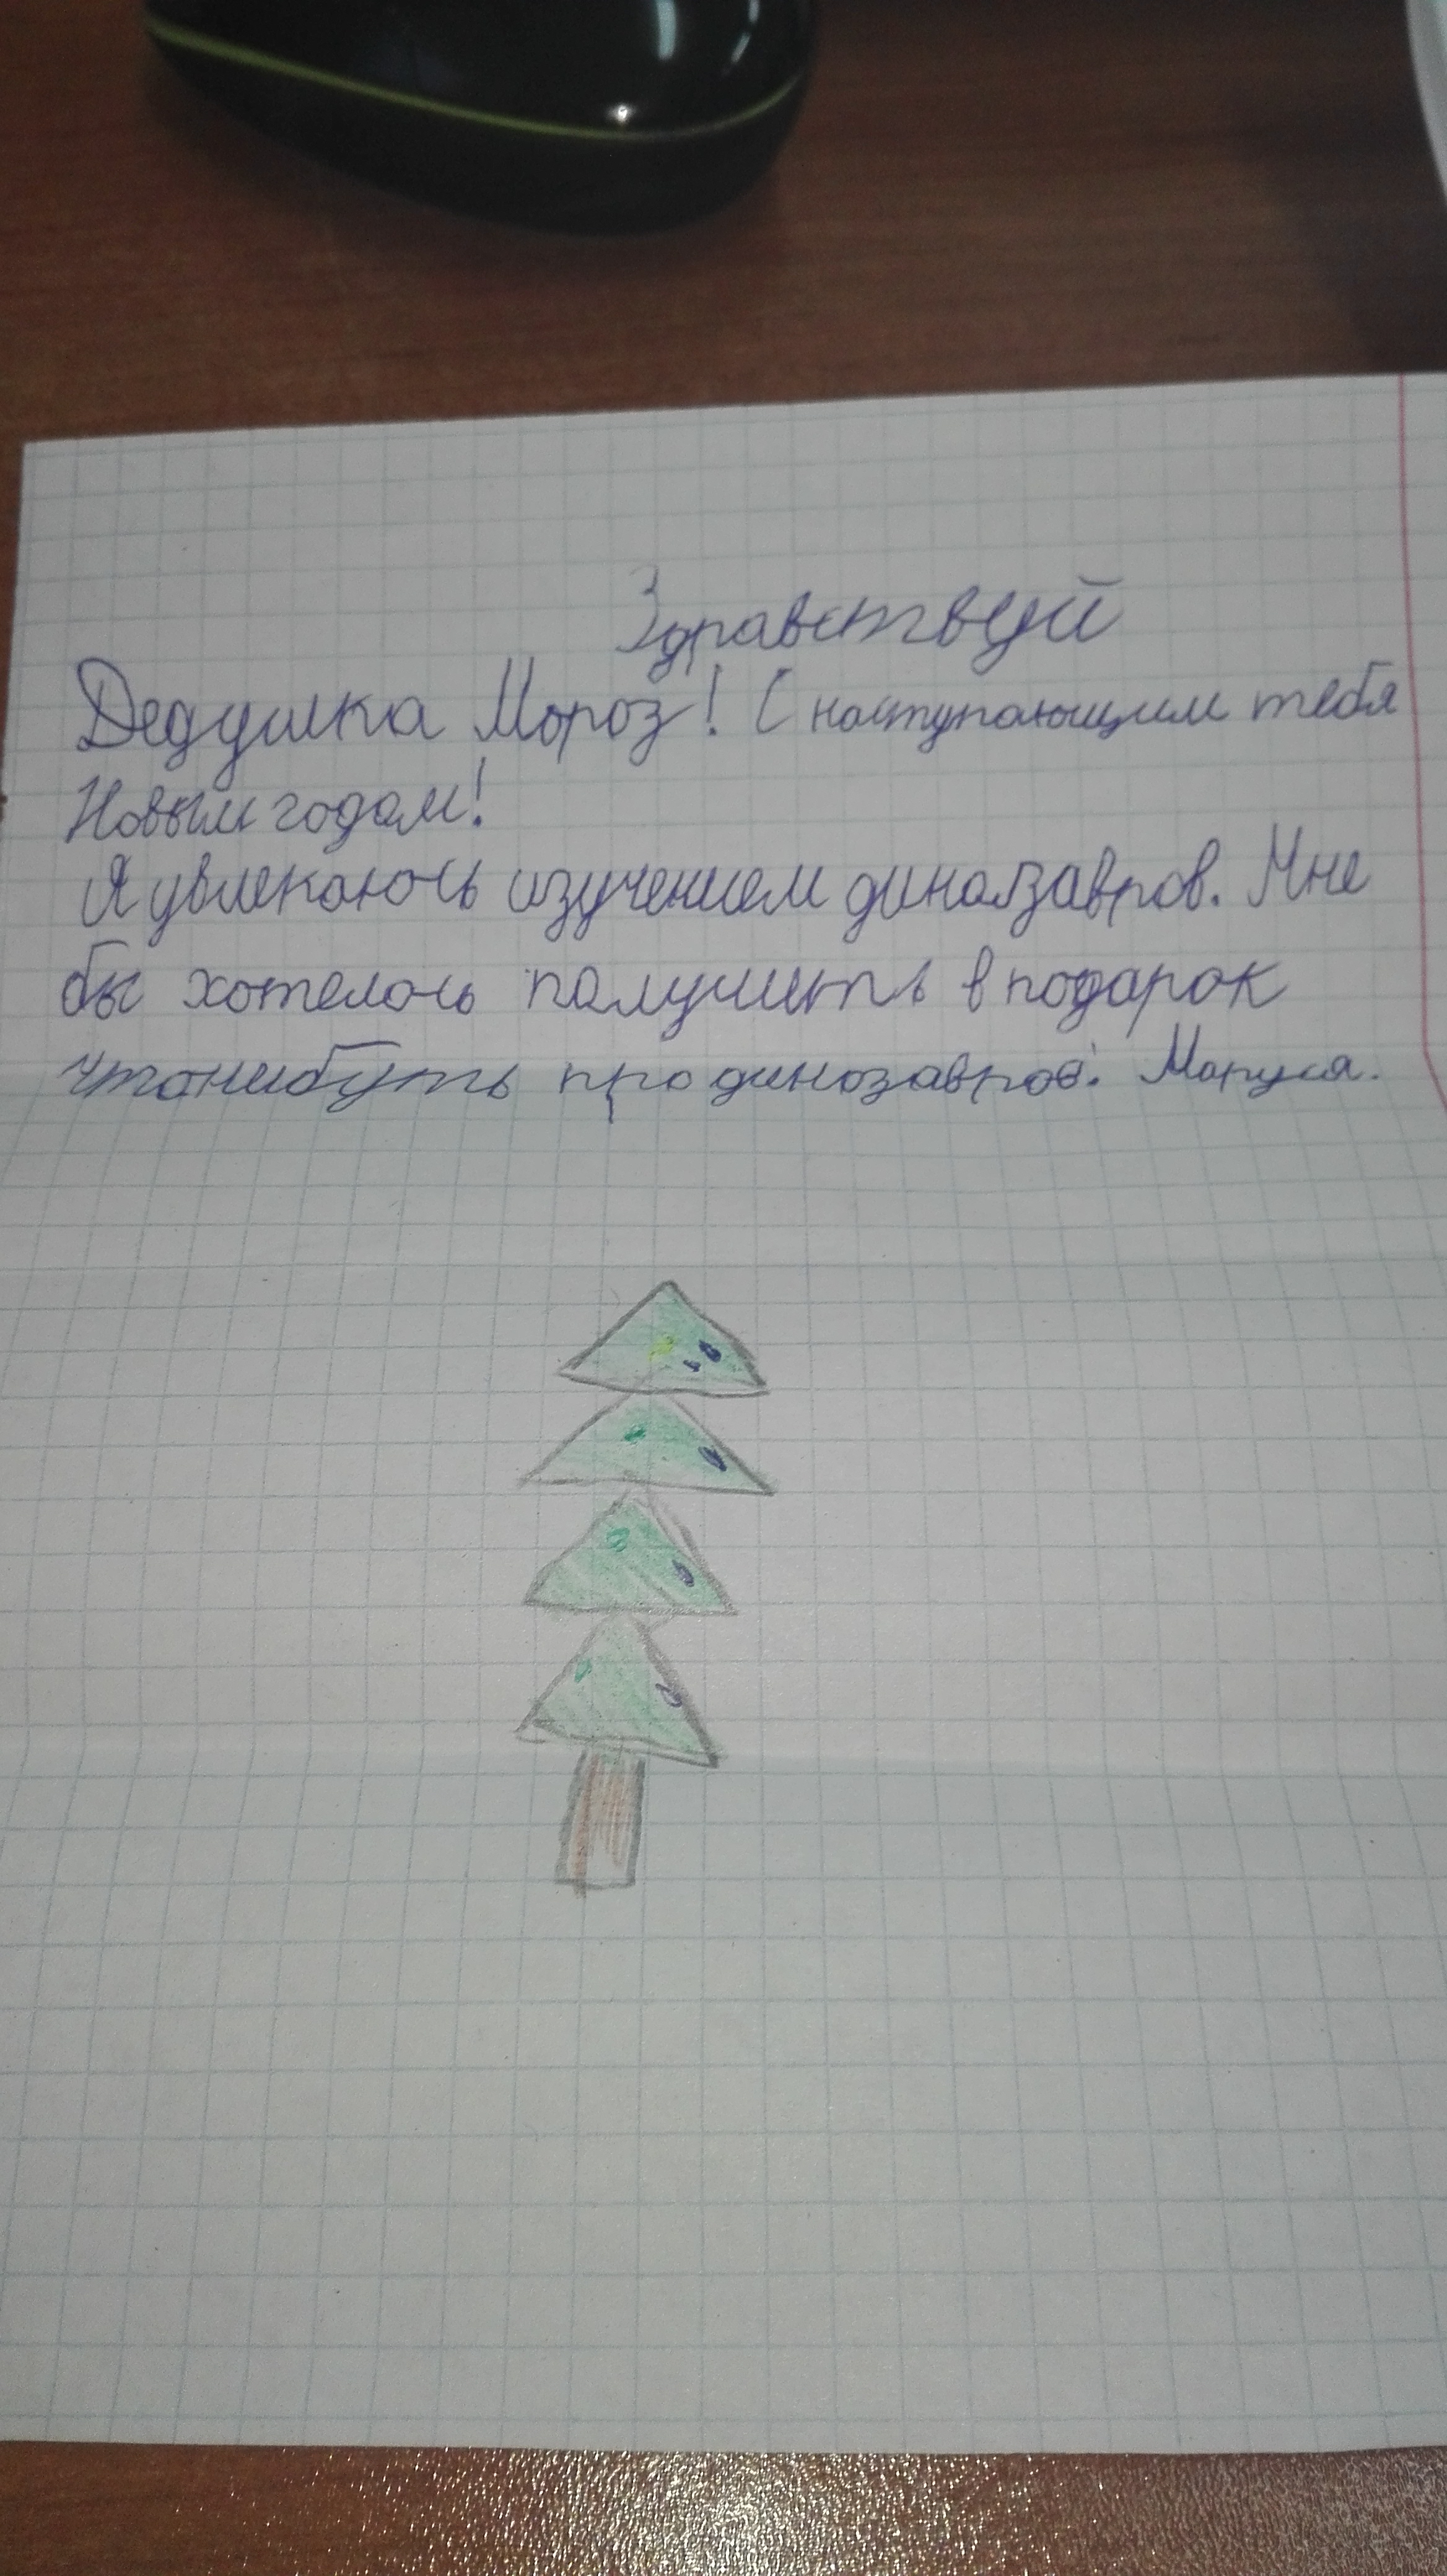 Здравствуй
Дедушка Мороз! С наступающим тебя
Новым годом!
Я увлекаюсь изучением динозавров. Мне
бы хотелось палучить в подарок
чтонибуть про динозавров. Маруся.